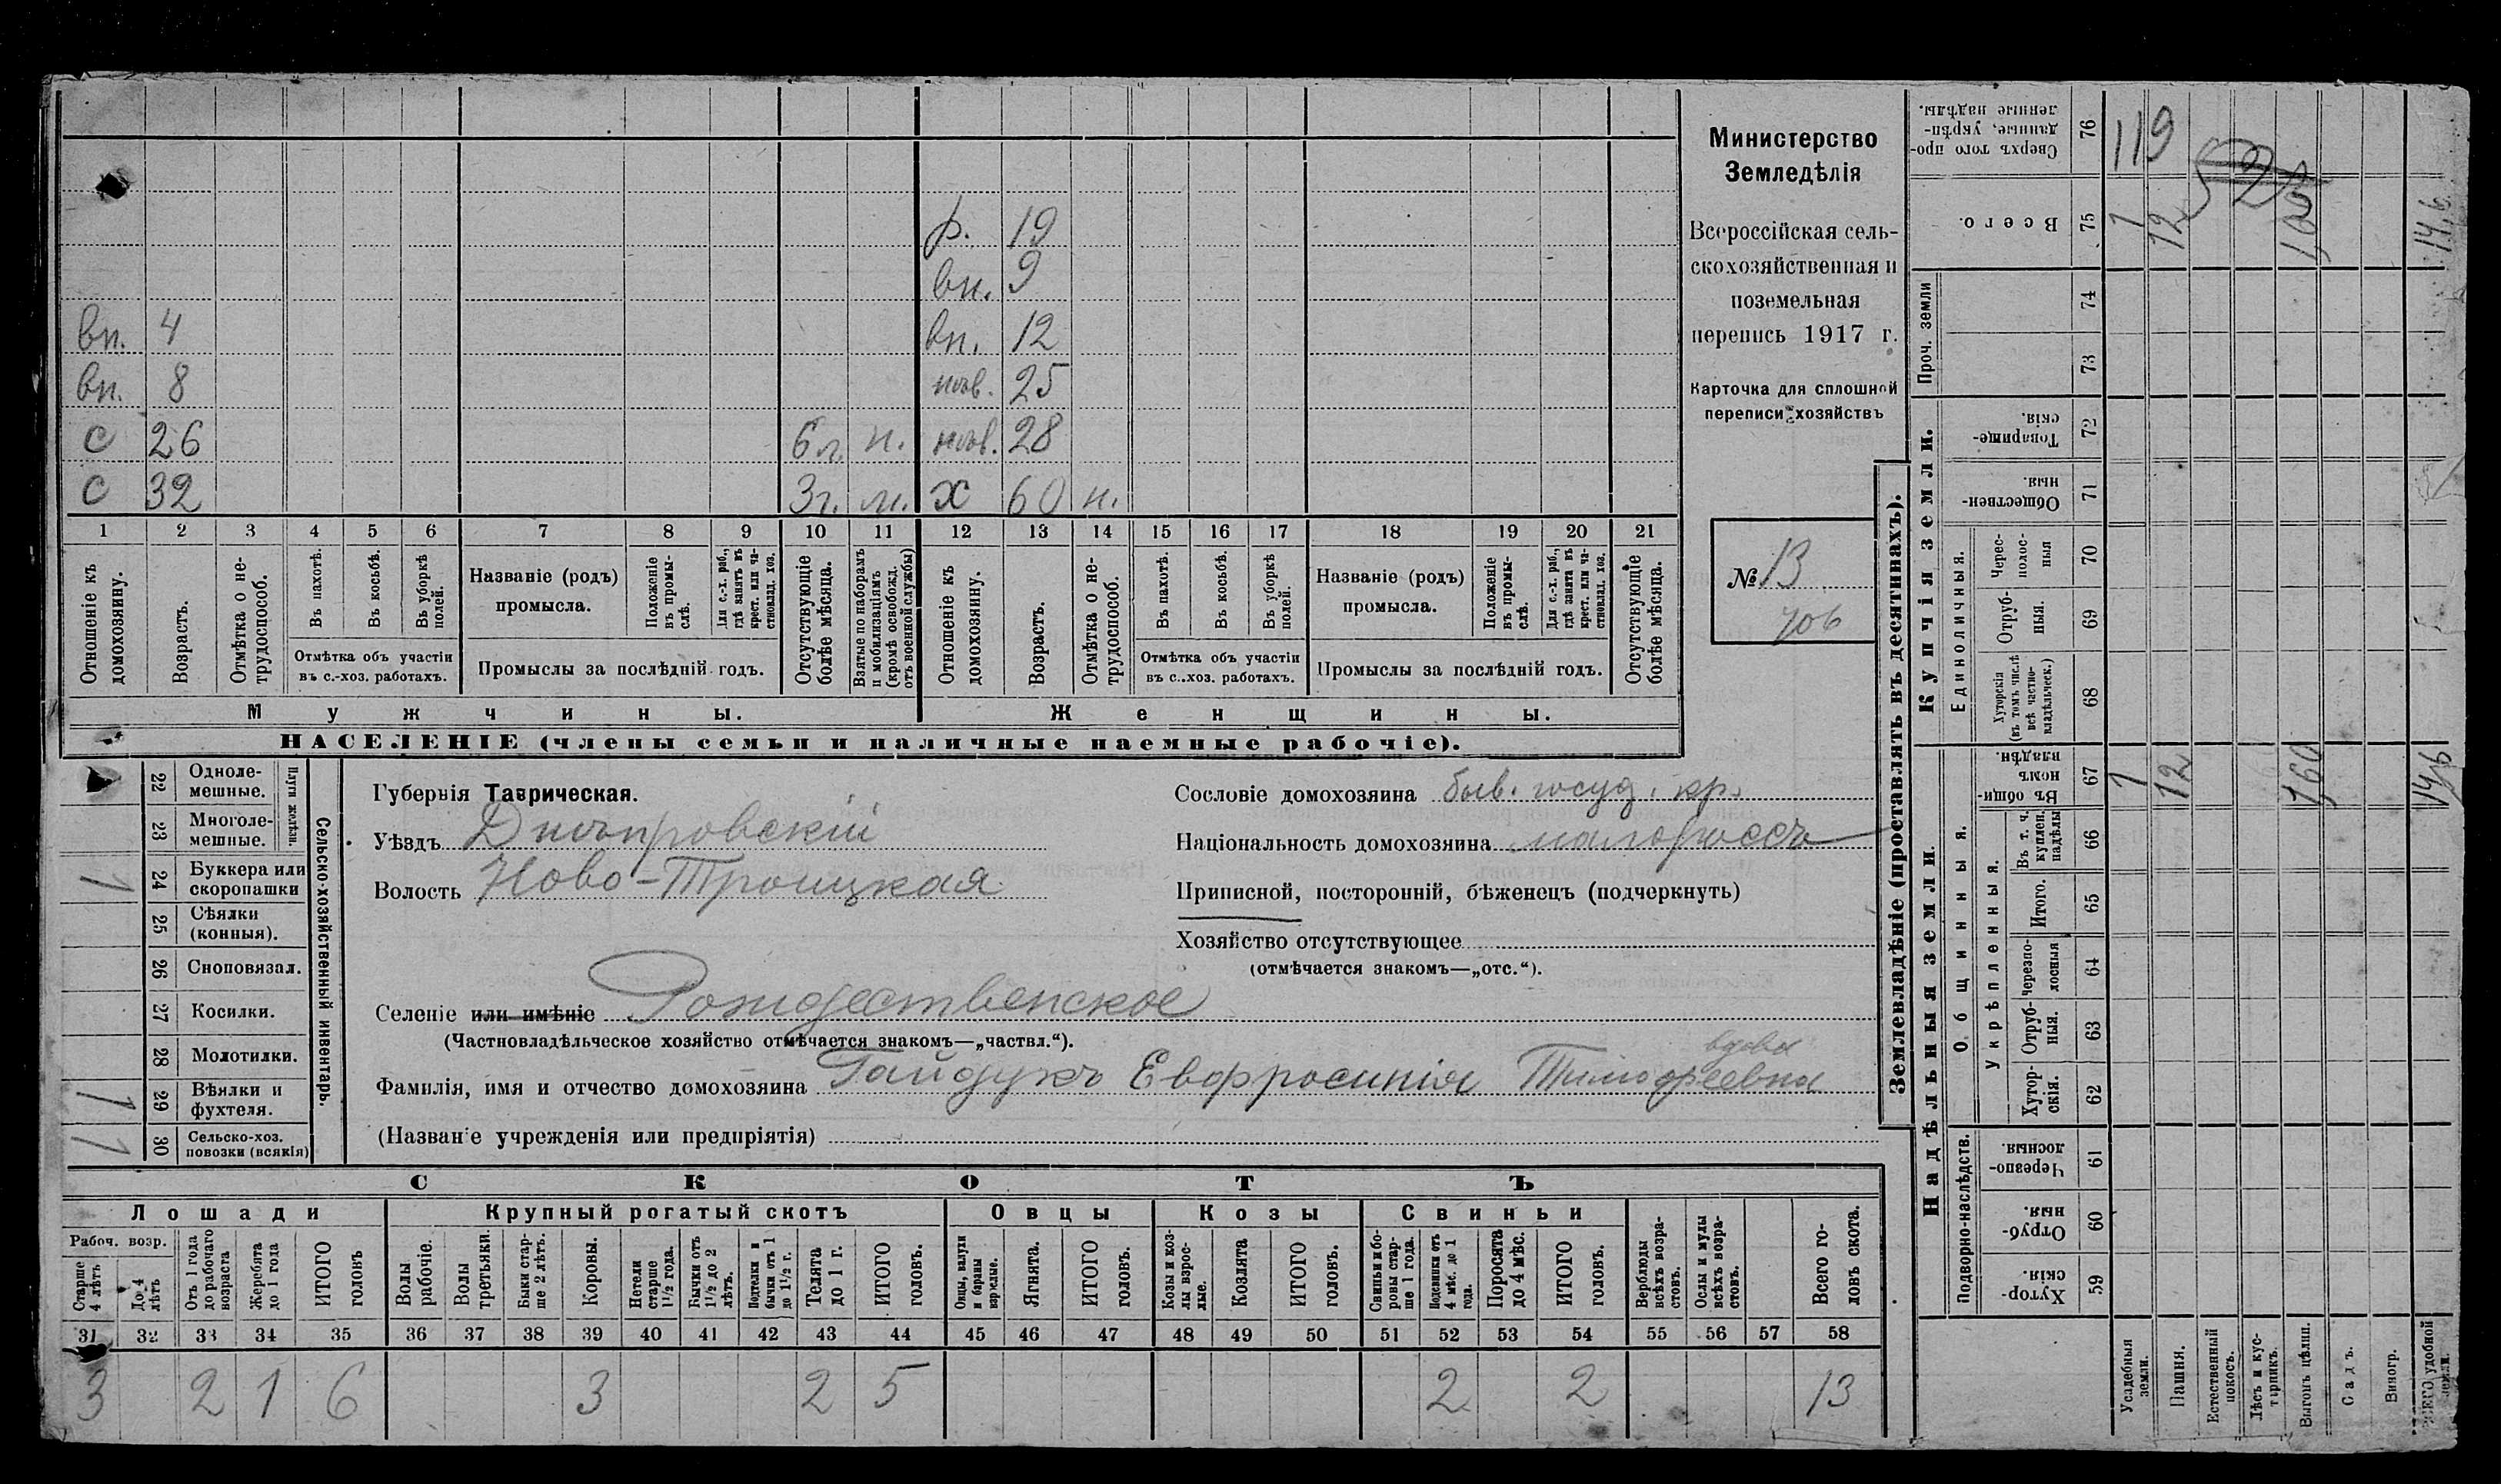 р. 19
вн. 9
вп. 4 вп. 12
вп. 8 нев. 25
с 26 6 л. п. нев. 28
с 32 3 г. м. х 60 н.
1 2 3 4 5 6 7 8 9 10 11 12 13 14 15 16 17 18 19 20 21
Отношеніе къ домохозяину.
Возрастъ.
Отмѣтка о не-
трудоспособ.
Въ пахотѣ.
Въ косьбѣ.
Въ уборкѣ полей.
Отмѣтка объ участіи
въ с.-хоз. работахъ.
Названіе (родъ)
промысла.
Положеніе
въ промы-
слѣ.
Для с.-х. раб.,
гдѣ занятъ въ
крест. или ча-
стновлад. хоз.
Промыслы за послѣдній годъ.
Отсутствующіе
болѣе мѣсяца.
Взятые по наборамъ
и мобилизаціямъ
(кромѣ освобожд.
отъ военной службы)
Отношеніе къ
домохозяину.
Возрастъ.
Отмѣтка о не-
трудоспособ.
Въ пахотѣ.
Въ косьбѣ.
Въ уборкѣ
полей.
Отмѣтка объ участіи
въ с.-хоз. работахъ.
Названіе (родъ)
промысла.
Положеніе
въ промы-
слѣ.
Для с.-х. раб.,
гдѣ занята въ
крест. или ча-
стновлад. хоз.
Промыслы за послѣдній годъ.
Отсутствующіе
болѣе мѣсяца.
Мужчины.
Женщины.
НАСЕЛЕНІЕ (члены семьи и наличные наемные рабочіе).
Министерство
Земледѣлія
Всероссійская сель-
скохозяйственная и
поземельная
перепись 1917 г.
Карточка для сплошной
переписи хозяйствъ
№ 13
706
22 Одноле-
мешные.
23 Многоле-
мешные.
Плуги желѣзн.
1 24 Буккера или
скоропашки
25 Сѣялки
(конныя).
26 Сноповязал.
27 Косилки.
28 Молотилки.
1 29 Вѣялки и
фухтеля.
1 30 Сельско-хоз.
повозки (всякія)
Сельско-хозяйственный инвентарь.
Губернія Таврическая.
Уѣздъ Днѣпровскій
Волость Ново-Троицкая
Сословіе домохозяина быв. госуд. кр.
Національность домохозяина малороссъ
Приписной, посторонній, бѣженецъ (подчеркнуть)
Хозяйство отсутствующее
(отмѣчается знакомъ—„отс.“).
Селеніе или имѣніе Рождественское
(Частновладѣльческое хозяйство отмѣчается знакомъ—„частвл.“).
вдова
Фамилія, имя и отчество домохозяина Гайдукъ Евфросинія Тимофеевна
(Названіе учрежденія или предпріятія)
СКОТЪ
Лошади
Крупный рогатый скотъ
Овцы
Козы
Свиньи
Рабоч. возр.
Старше
4 лѣтъ
До 4
лѣтъ
Отъ 1 года
до рабочаго
возраста
Жеребята
до 1 года
ИТОГО
головъ
Волы
рабочіе.
Волы
третьяки.
Быки стар-
ше 2 лѣтъ.
Коровы.
Нетели
старше
1½ года.
Бычки отъ
1½ до 2
лѣтъ.
Подтелки и
бычки отъ 1
до 1½ г.
Телята
до 1 г.
ИТОГО
головъ.
Овцы, валухи
и бараны
взрослые.
Ягнята.
ИТОГО
головъ.
Козы и коз-
лы взрос-
лые.
Козлята
ИТОГО
головъ.
Свиньи и бо-
ровы стар-
ше 1 года.
Подсвинки отъ
4 мѣс. до 1
года.
Поросята
до 4 мѣс.
ИТОГО
головъ.
Верблюды
всѣхъ возра-
стовъ.
Ослы и мулы
всѣхъ возра-
стовъ.
Всего го-
ловъ скота.
31 32 33 34 35 36 37 38 39 40 41 42 43 44 45 46 47 48 49 50 51 52 53 54 55 56 57 58
3 2 1 6 3 2 5 2 2 13
Землевладѣніе (проставлять въ десятинахъ).
Сверхъ того про-
данные, укрѣп-
ленные надѣлы. 76 119
Всего. 75 1 12 160 14,6
Проч. земли
74
73
Купчія земли.
Товарище-
скія. 72
Обществен-
ныя. 71
Единоличныя.
Черес-
полос-
ныя 70
Отруб-
ныя. 69
Хуторскія
(въ томъ числѣ
всѣ частно-
владѣльческ.) 68
Надѣльныя земли.
Общинныя.
Въ общи-
номъ
владѣн. 67 1 12 160 14,6
Укрѣпленныя.
Въ т. ч.
куплен.
надѣлы 66
Итого. 65
Черезпо-
лосныя 64
Отруб-
ныя. 63
Хутор-
скія. 62
Подворно-наслѣдств.
Черезпо-
лосныя 61
Отруб-
ныя. 60
Хутор-
скія. 59
Усадебныя
земли.
Пашня.
Естественный
покосъ.
Лѣсъ и кус-
тарникъ.
Выгонъ цѣлин.
Садъ.
Виногр.
ВСЕГО удобной
земли.